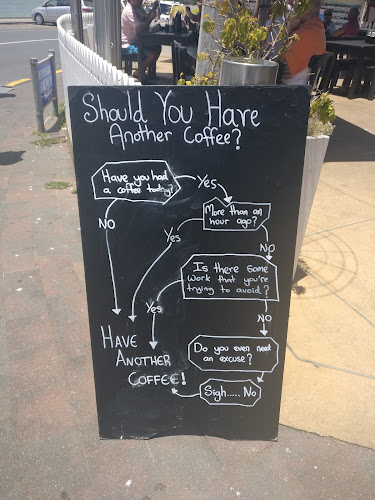 Should You Have
Another Coffee?
Have you had
a coffee today?
Yes
More than an
hour ago?
NO
Yes
No
Is there some
work that you're
trying to avoid?
Yes
NO
HAVE
ANOTHER
COFFEE!
Do you even need
an excuse?
Sigh..... No